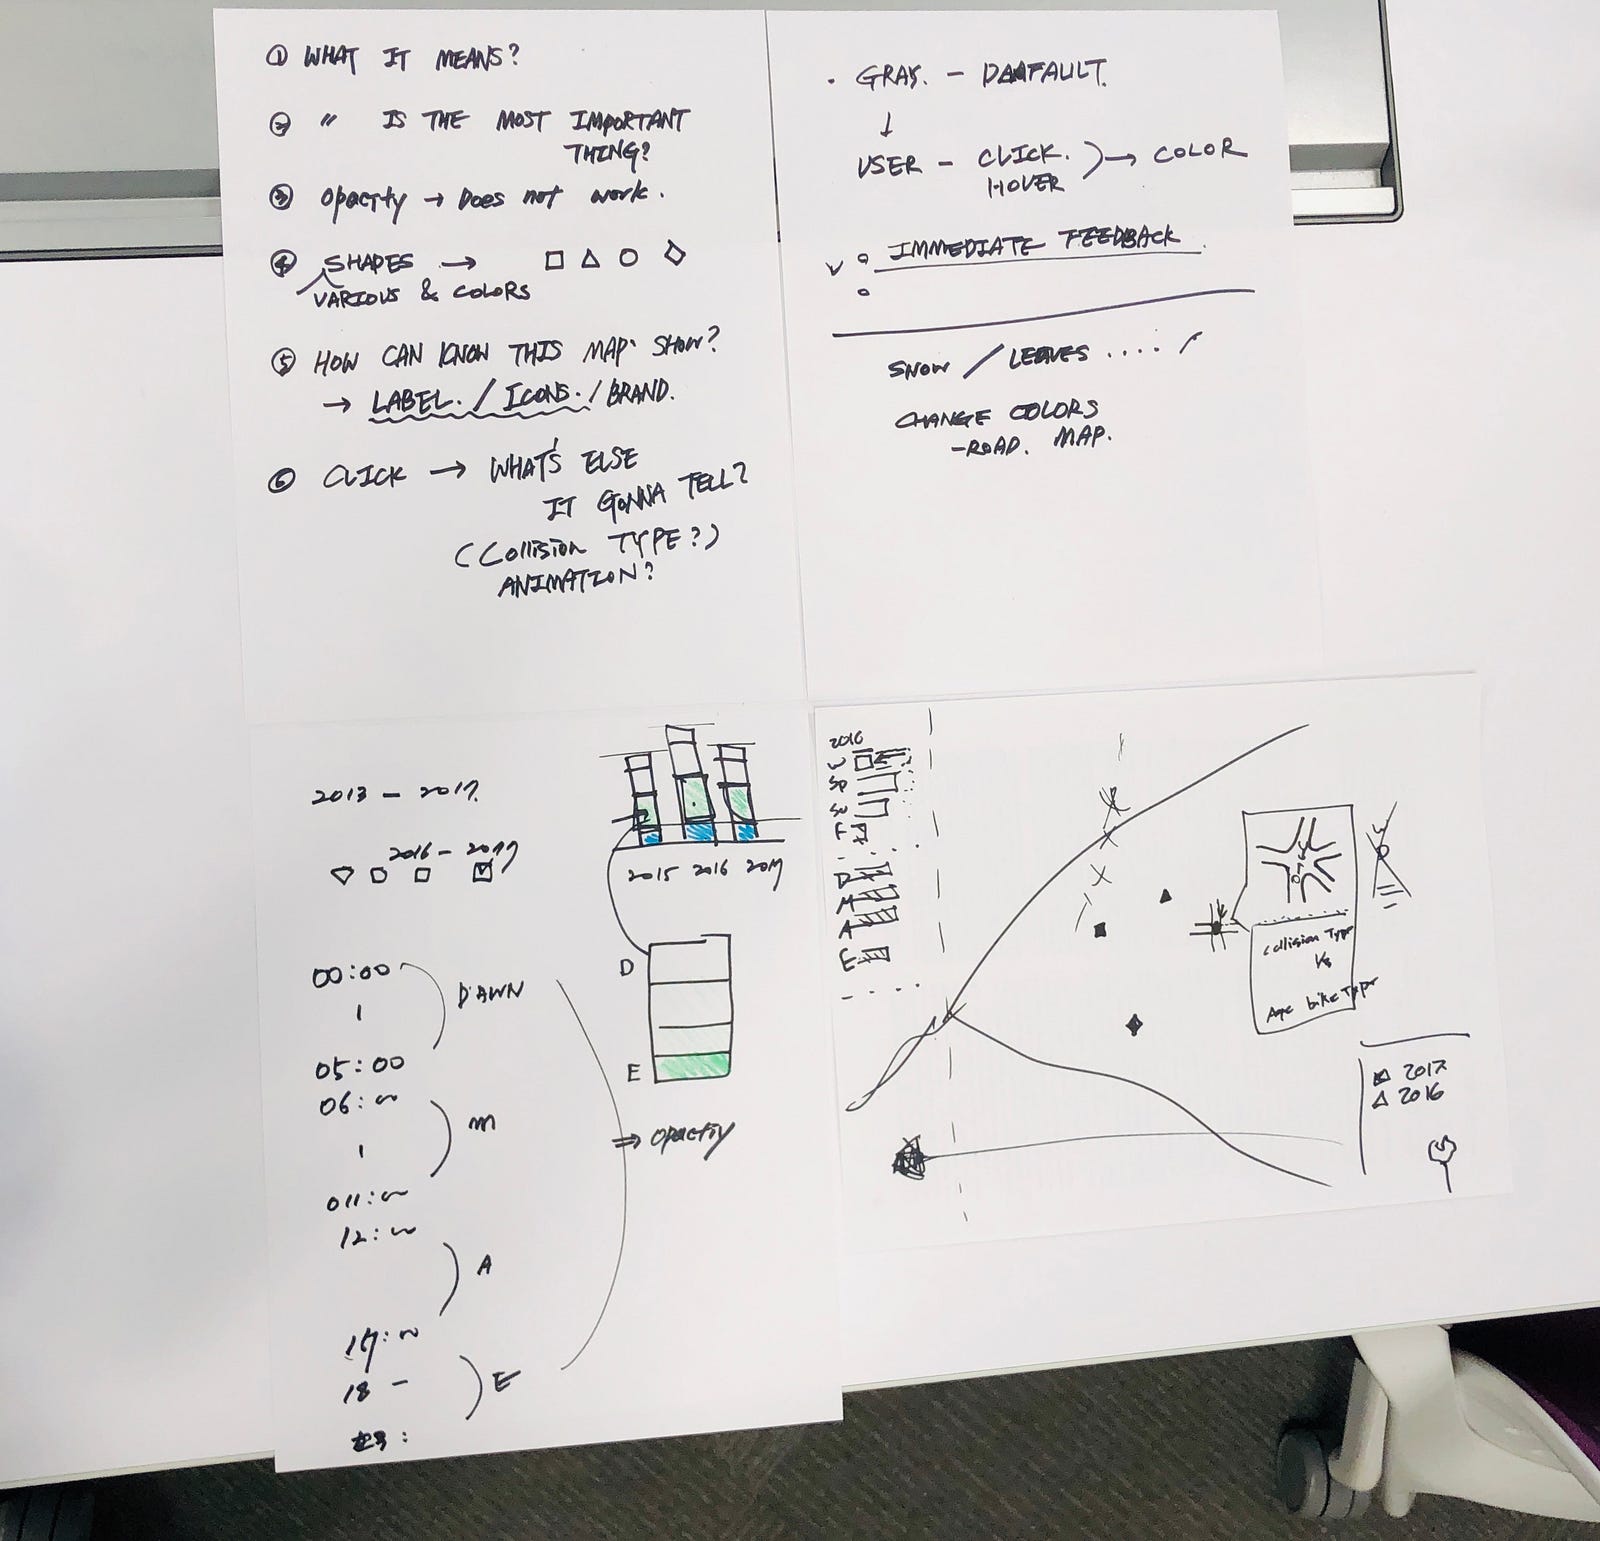 ① WHAT IT MEANS?
② " IS THE MOST IMPORTANT
THING?
③ OPACITY → DOES NOT WORK.
④ SHAPES → □ △ ○ ◇
VARIOUS & COLORS
⑤ HOW CAN KNOW THIS MAP SHOW?
→ LABEL. / ICONS. / BRAND.
⑥ CLICK → WHAT'S ELSE
IT GONNA TELL?
(COLLISION TYPE?)
ANIMATION?
· GRAY. — DAFAULT.
↓
USER — CLICK. ) → COLOR
HOVER
IMMEDIATE FEEDBACK
SNOW / LEAVES ....
CHANGE COLORS
-ROAD. MAP.
2013 - 2017.
2016 - 2017
2015 2016 2017
00:00
DAWN
05:00
06:00
M
011:00
12:00
A
17:00
18 -
E
D
E
⇒ OPACTIY
2016
W
SP
SU
F
D
M
A
E
Collision Type
Age bike Type
2017
△ 2016